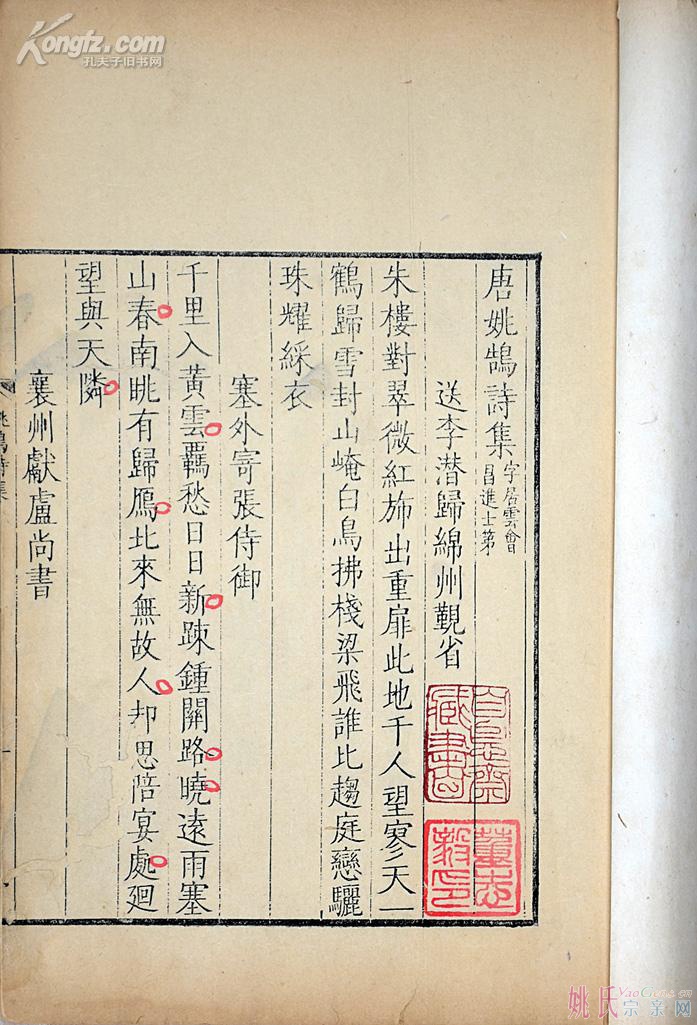 Kongfz.com
孔夫子旧书网
唐姚鵠詩集 字居雲會
昌進士第
送李潜歸綿州覲省
朱樓對翠微紅斾出重扉此地千人望寥天一
鶴歸雪封山崦白鳥拂棧梁飛誰比趨庭戀驪
珠耀綵衣
塞外寄張侍御
千里入黃雲羈愁日日新踈鍾關路曉遠雨塞
山春南眺有歸鴈北來無故人却思陪宴處廻
望與天隣
襄州獻盧尚書
姚鵠詩集
一
藏書
董志
毅印
姚氏宗亲网